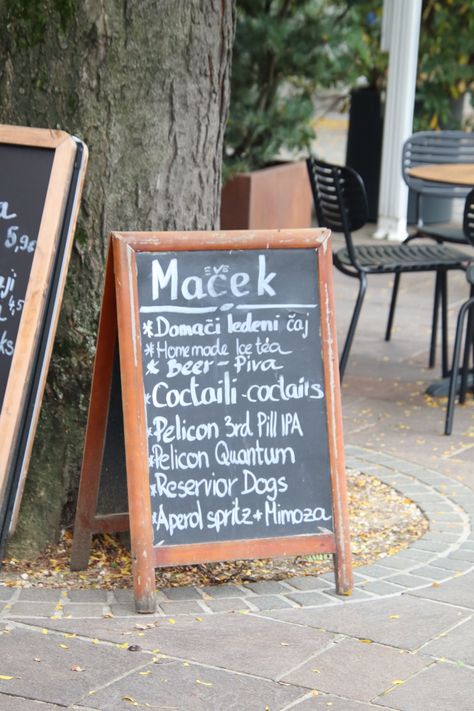 5,9€
Maček
* Domači ledeni čaj
* Homemade Ice tea
* Beer - Piva
* Coctaili - coctails
* Pelicon 3rd Pill IPA
* Pelicon Quantum
* Reservior Dogs
* Aperol spritz + Mimoza